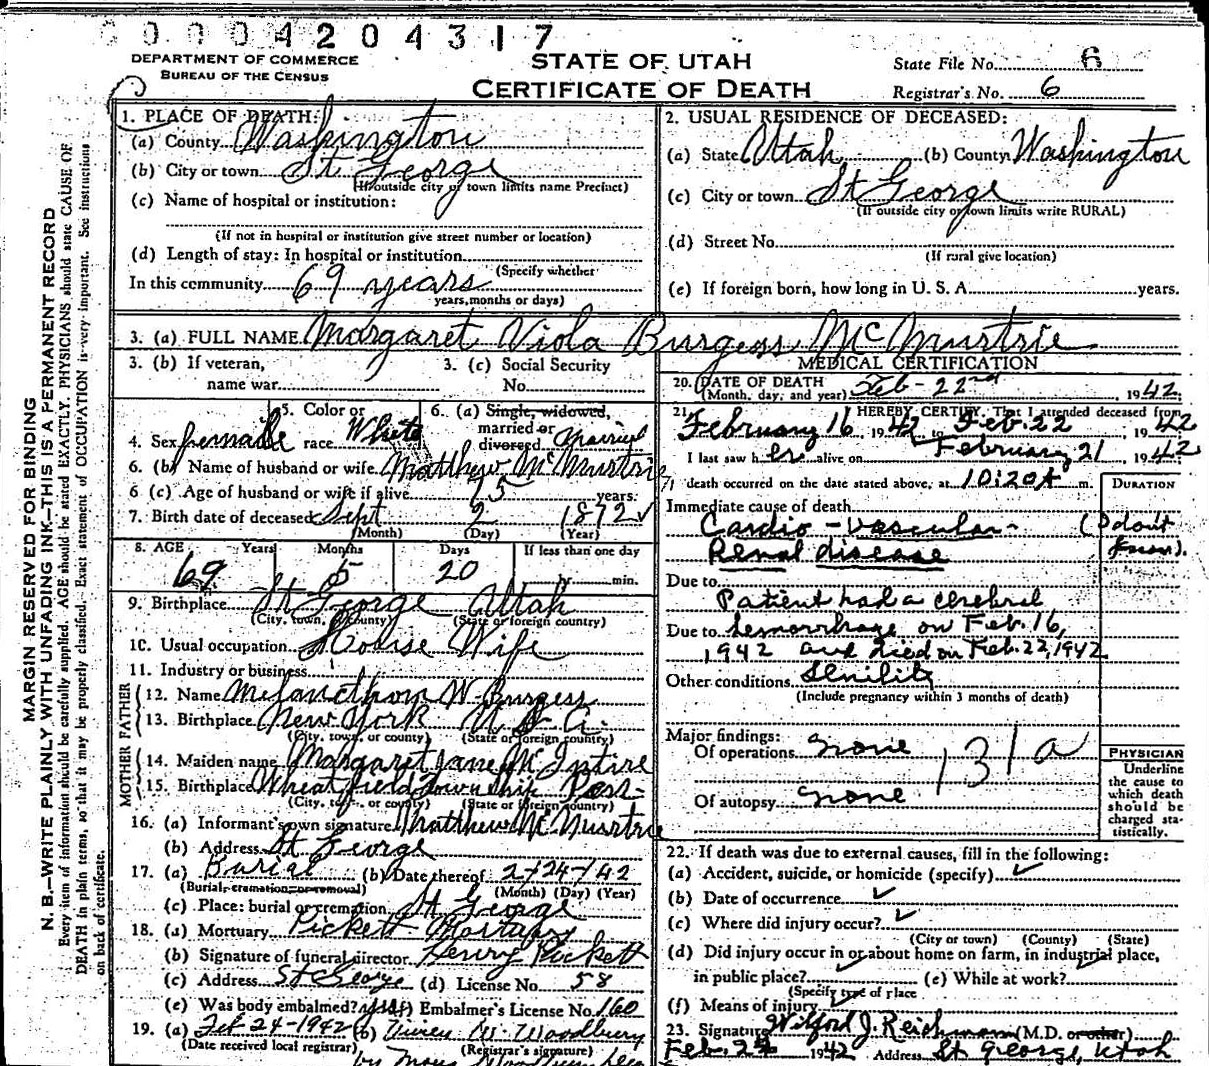 0 0 0 4 2 0 4 3 1 7
DEPARTMENT OF COMMERCE
BUREAU OF THE CENSUS
STATE OF UTAH
CERTIFICATE OF DEATH
State File No. 6
Registrar's No. 6
MARGIN RESERVED FOR BINDING
N. B.—WRITE PLAINLY WITH UNFADING INK—THIS IS A PERMANENT RECORD
Every item of information should be carefully supplied. AGE should be stated EXACTLY. PHYSICIANS should state CAUSE OF
DEATH in plain terms, so that it may be properly classified. Exact statement of OCCUPATION is very important. See instructions
on back of certificate.
1. PLACE OF DEATH:
(a) County Washington
(b) City or town St George
(If outside city or town limits name Precinct)
(c) Name of hospital or institution:
(If not in hospital or institution give street number or location)
(d) Length of stay: In hospital or institution
(Specify whether
In this community 69 years
years, months or days)
2. USUAL RESIDENCE OF DECEASED:
(a) State Utah (b) County Washington
(c) City or town St George
(If outside city or town limits write RURAL)
(d) Street No.
(If rural give location)
(e) If foreign born, how long in U. S. A. years.
3. (a) FULL NAME Margaret Viola Burgess McMurtrie
3. (b) If veteran,
name war
3. (c) Social Security
No.
4. Sex female
5. Color or
race White
6. (a) Single, widowed,
married or
divorced Married
6. (b) Name of husband or wife Matthew McMurtrie
6 (c) Age of husband or wife if alive 75 years.
7. Birth date of deceased Sept 2 1872
(Month) (Day) (Year)
8. AGE Years Months Days If less than one day
69 5 20 hr. min.
9. Birthplace St George Utah
(City, town, or county) (State or foreign country)
10. Usual occupation House Wife
11. Industry or business
FATHER
12. Name Melancthon W. Burgess
13. Birthplace New York U S A.
(City, town, or county) (State or foreign country)
MOTHER
14. Maiden name Margaret Jane McIntire
15. Birthplace Wheatfield Township
(City, town, or county) (State or foreign country)
16. (a) Informant's own signature Matthew McMurtrie
(b) Address St George
17. (a) Burial (b) Date thereof 2-24-42
(Burial, cremation, or removal) (Month) (Day) (Year)
(c) Place: burial or cremation St George
18. (a) Mortuary Pickett Mortuary
(b) Signature of funeral director Henry Pickett
(c) Address St George (d) License No. 58
(e) Was body embalmed? yes (f) Embalmer's License No. 160
19. (a) Feb 24-1942 (b) W. Woodbury
(Date received local registrar) (Registrar's signature)
by
MEDICAL CERTIFICATION
20. DATE OF DEATH
(Month, day, and year) Feb - 22nd, 1942
21. I HEREBY CERTIFY, That I attended deceased from
February 16, 1942 to Feb. 22, 1942
I last saw her alive on February 21 1942
death occurred on the date stated above, at 10:20 A m.
DURATION
Immediate cause of death
Cardio-vascular- (don't
Renal disease know).
Due to
Patient had a cerebral
Due to hemorrhage on Feb. 16,
1942 and died on Feb. 22, 1942
Other conditions Senility
(Include pregnancy within 3 months of death)
Major findings:
Of operations none 131a
Of autopsy none
PHYSICIAN
Underline
the cause to
which death
should be
charged sta-
tistically.
22. If death was due to external causes, fill in the following:
(a) Accident, suicide, or homicide (specify) ✓
(b) Date of occurrence ✓
(c) Where did injury occur? ✓
(City or town) (County) (State)
(d) Did injury occur in or about home on farm, in industrial place,
in public place? (e) While at work?
(Specify type of place
(f) Means of injury
23. Signature Wilford J. Reichmann (M.D. or other)
Feb. 24 1942 Address St George, Utah